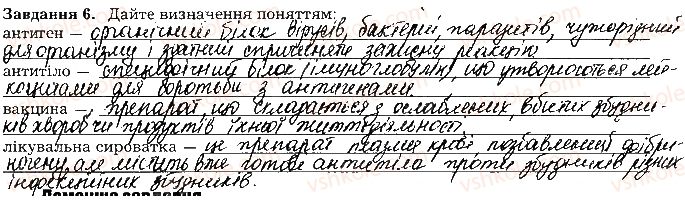 Завдання 6. Дайте визначення поняттям:
антиген – органічний білок вірусів, бактерій, паразитів, чужорідний
для організму і здатний спричиняти захисну реакцію
антитіло – специфічний білок (імуноглобулін), що утворюється лей-
коцитами для боротьби з антигенами.
вакцина – препарат що складається з ослаблених, вбитих збудни-
ків хвороб чи продуктів їхньої життєдіяльності.
лікувальна сироватка – це препарат плазми крові, позбавлений фібри-
ногену, але містить вже готове антитіла проти збудників різних
інфекційних збудників.